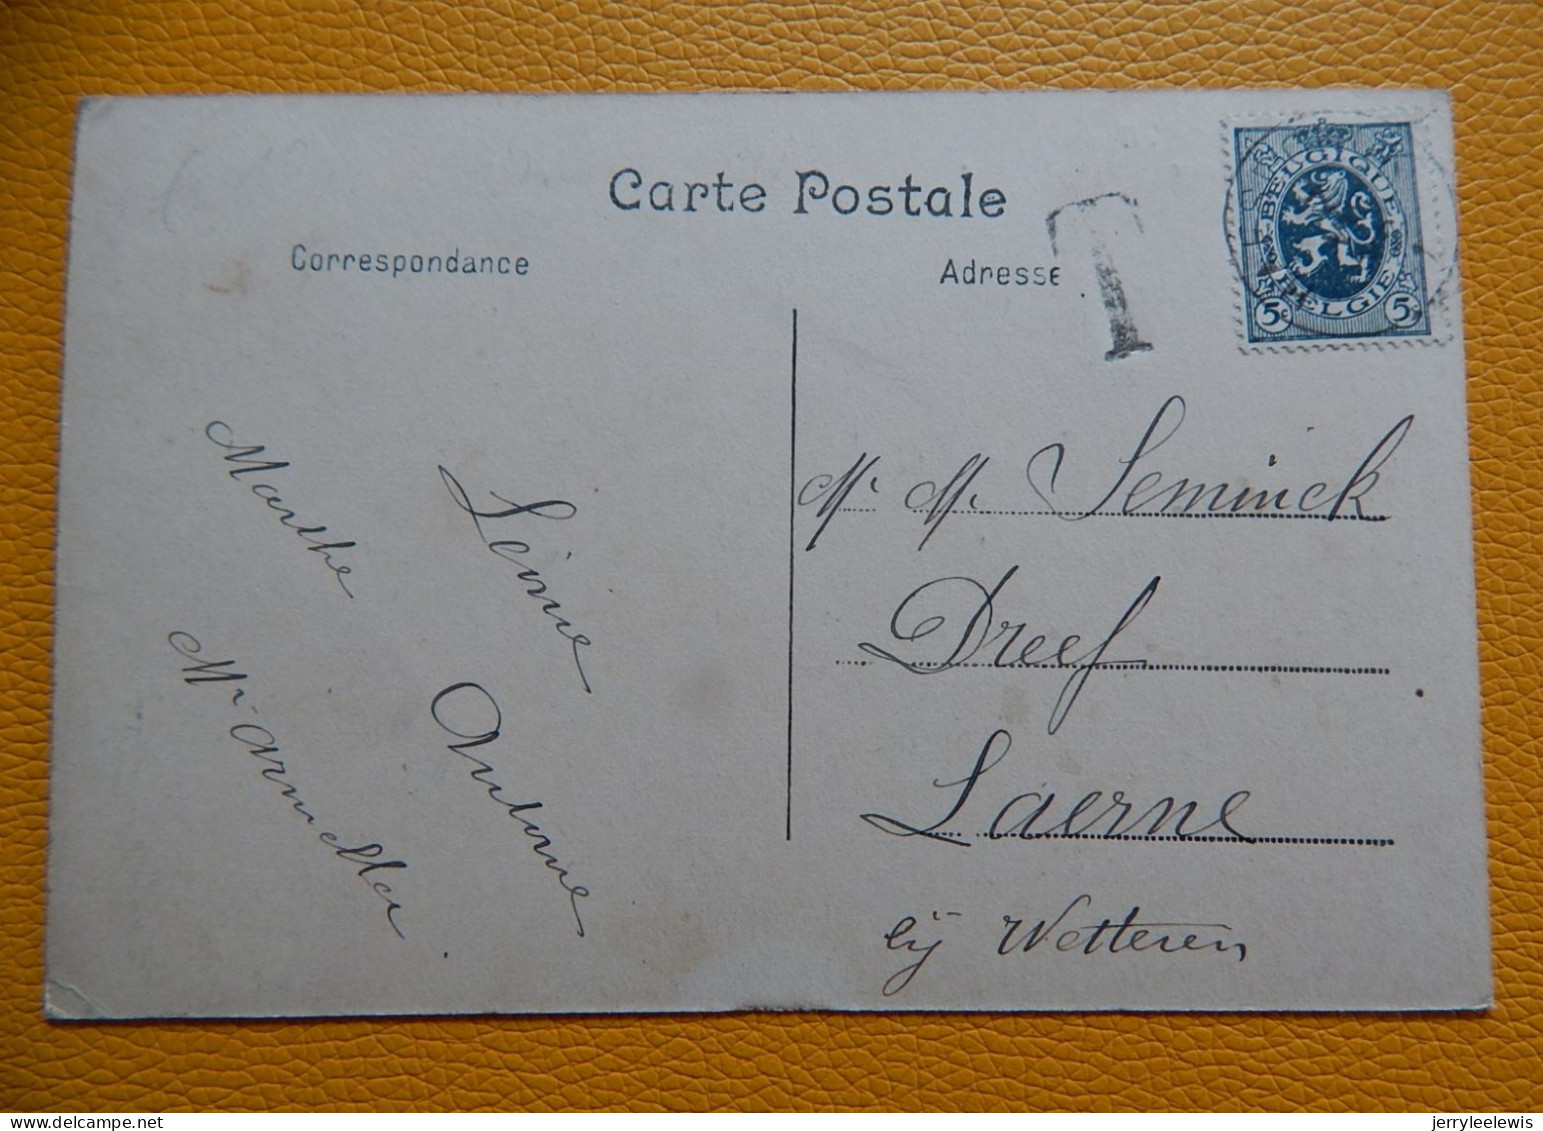 Carte Postale
Correspondance
Adresse
T
BELGIQUE
BELGIE
5c 5c
Marthe
Léonie
Antoine
Mr M. Seminck
Dreef
Laerne
bij Wetteren
delcampe.net
jerryleelewis